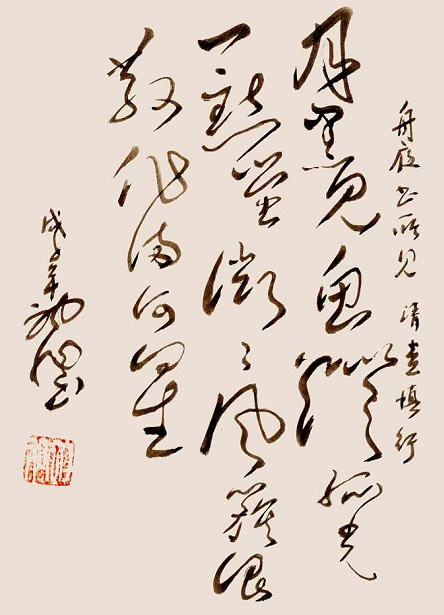 舟夜书所见 清 查慎行
月黑见鱼燈孤光
一點萤微々风簇浪
散作满河星
戊子年